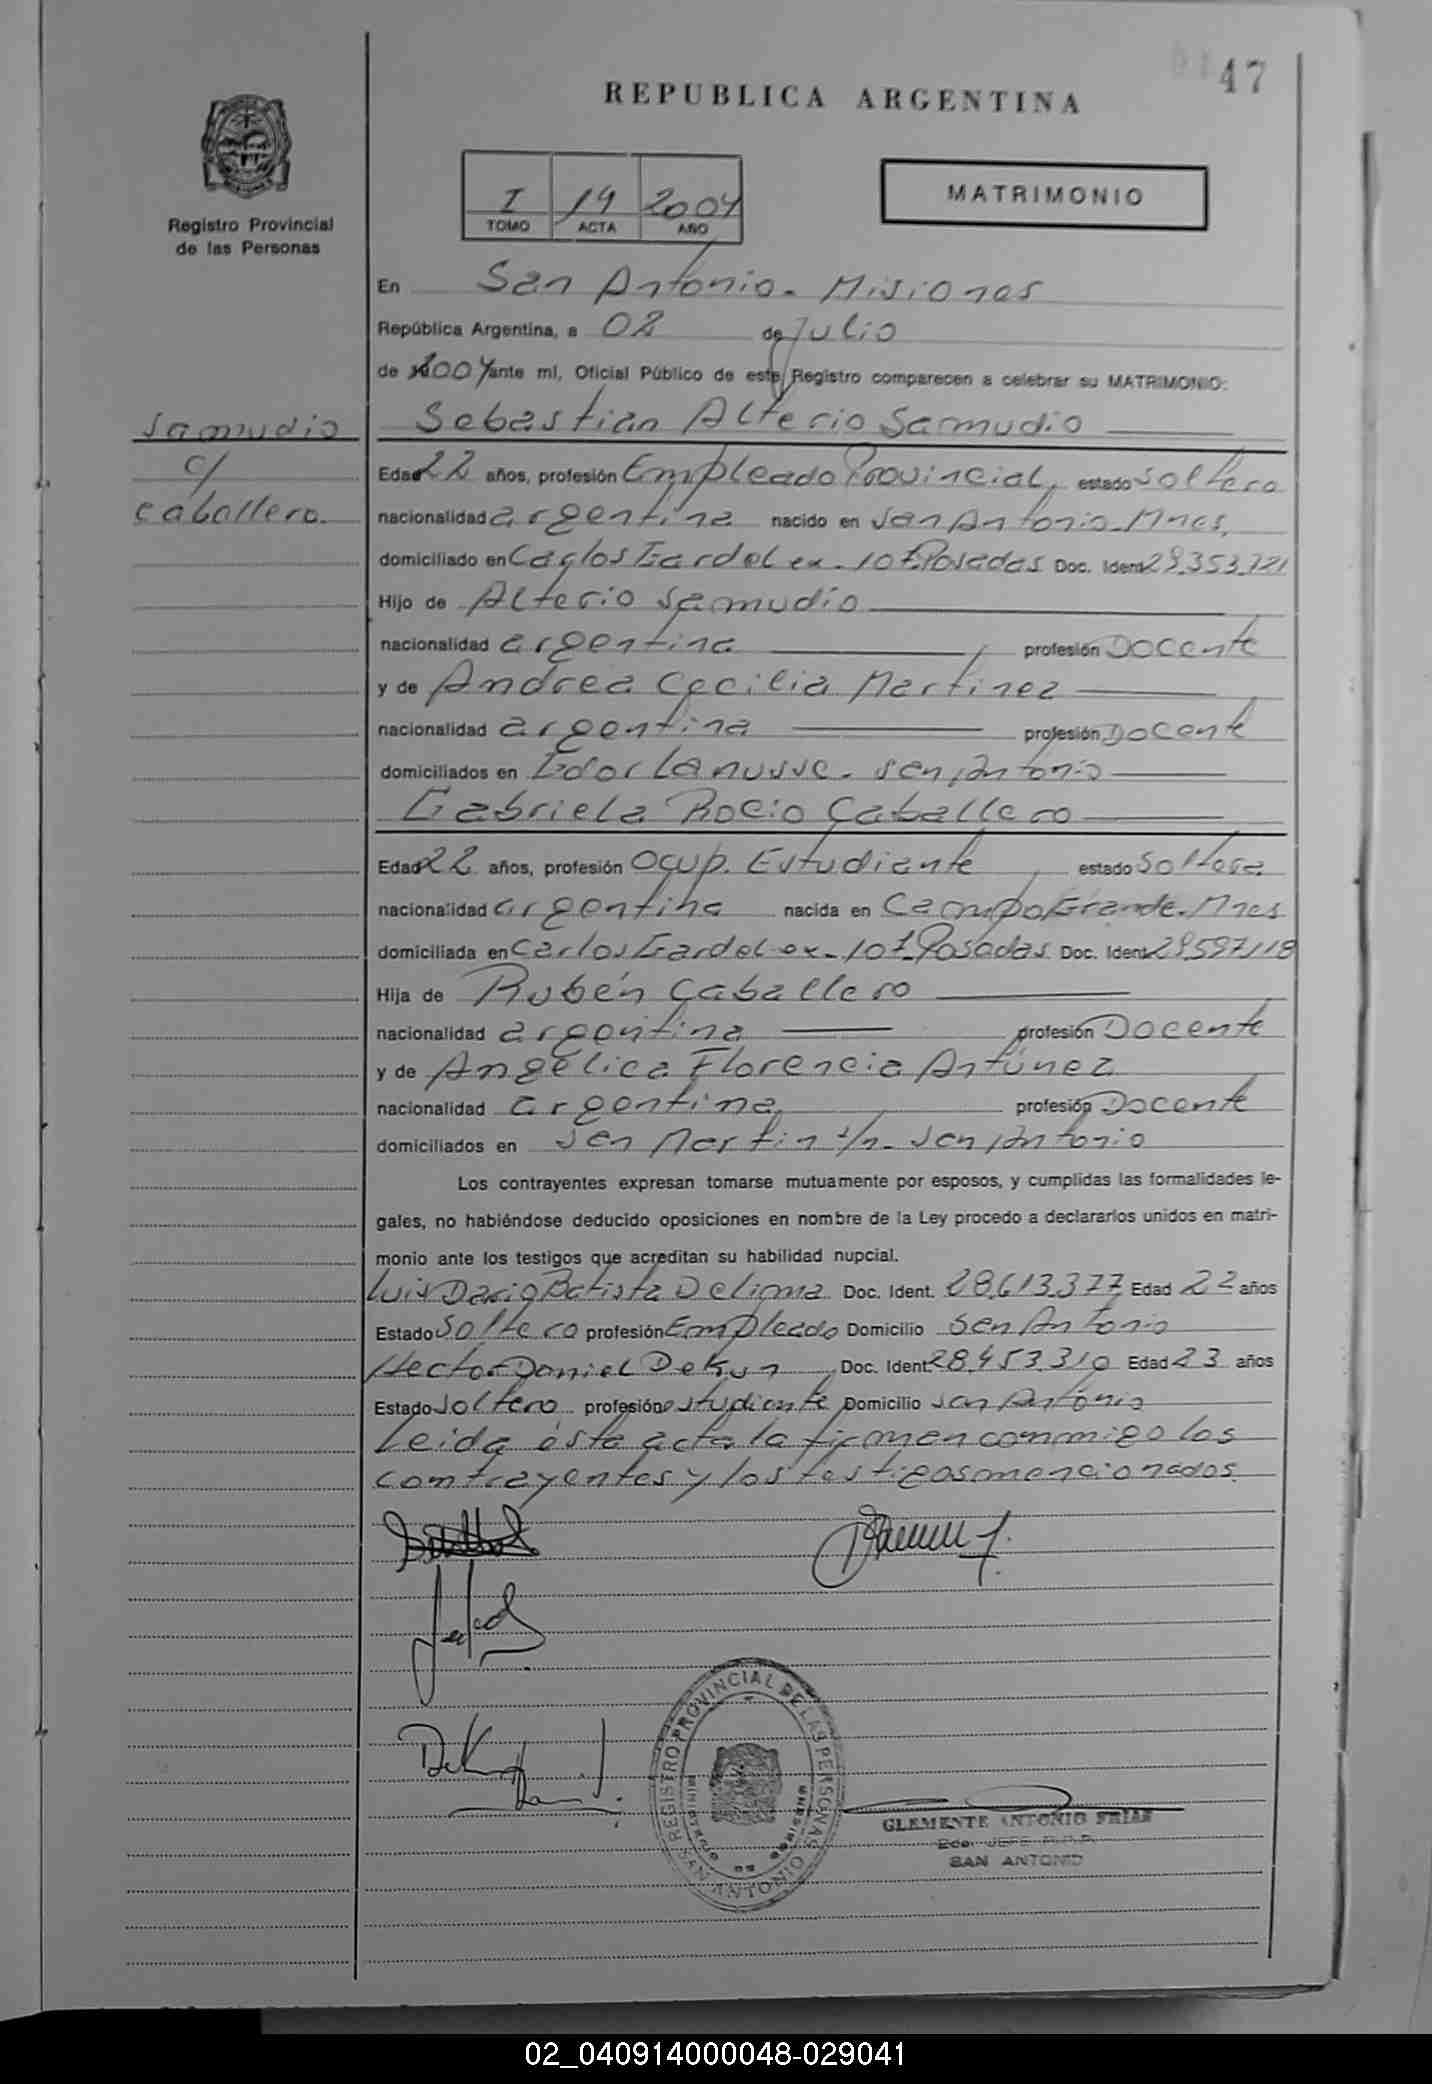 47
REPUBLICA ARGENTINA
Registro Provincial
de las Personas
I 19 2004
TOMO ACTA AÑO
MATRIMONIO
En San Antonio - Misiones
República Argentina, a 02 de Julio
de 2004 ante mí, Oficial Público de este Registro comparecen a celebrar su MATRIMONIO:
Samudio
c/
Caballero.
Sebastián Alterio Samudio
Edad 22 años, profesión Empleado Provincial, estado soltero
nacionalidad argentina nacido en San Antonio-Mnes,
domiciliado en Carlos Gardel ex-107-Posadas Doc. Ident. 29.353.721
Hijo de Alterio Samudio
nacionalidad argentina profesión Docente
y de Andrea Cecilia Martinez
nacionalidad argentina profesión Docente
domiciliados en Gdor Lanusse - San Antonio
Gabriela Rocio Caballero
Edad 22 años, profesión Ocup. Estudiante estado soltera
nacionalidad argentina nacida en Campo Grande-Mnes
domiciliada en Carlos Gardel ex-107-Posadas Doc. Ident. 29.597.118
Hija de Rubén Caballero
nacionalidad argentina profesión Docente
y de Angélica Florencia Antúnez
nacionalidad argentina profesión Docente
domiciliados en San Martin s/n - San Antonio
Los contrayentes expresan tomarse mutuamente por esposos, y cumplidas las formalidades le-
gales, no habiéndose deducido oposiciones en nombre de la Ley procedo a declararlos unidos en matri-
monio ante los testigos que acreditan su habilidad nupcial.
Luis Dario Batista Delima Doc. Ident. 28.613.377 Edad 22 años
Estado soltero profesión Empleado Domicilio San Antonio
Hector Daniel Dekun Doc. Ident. 28.453.310 Edad 23 años
Estado soltero profesión estudiante Domicilio San Antonio
Leida ésta acta la firman conmigo los
contrayentes y los testigos mencionados.
REGISTRO PROVINCIAL DE LAS PERSONAS
SAN ANTONIO
MINISTERIO DE
CLEMENTE ANTONIO FRIAS
2do. JEFE R.P.P.
SAN ANTONIO
02_040914000048-029041